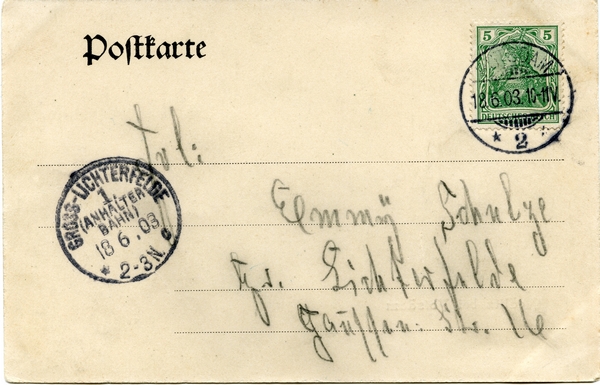 Postkarte
5 5
DEUTSCHES REICH
18.6.03.10-11V.
* 2 *
Frl:
GROSS-LICHTERFELDE
1.
(ANHALTER
BAHN)
18.6.03
* 2-3N.
Emmy Schulze
Gr. Lichterfelde
Str. 16